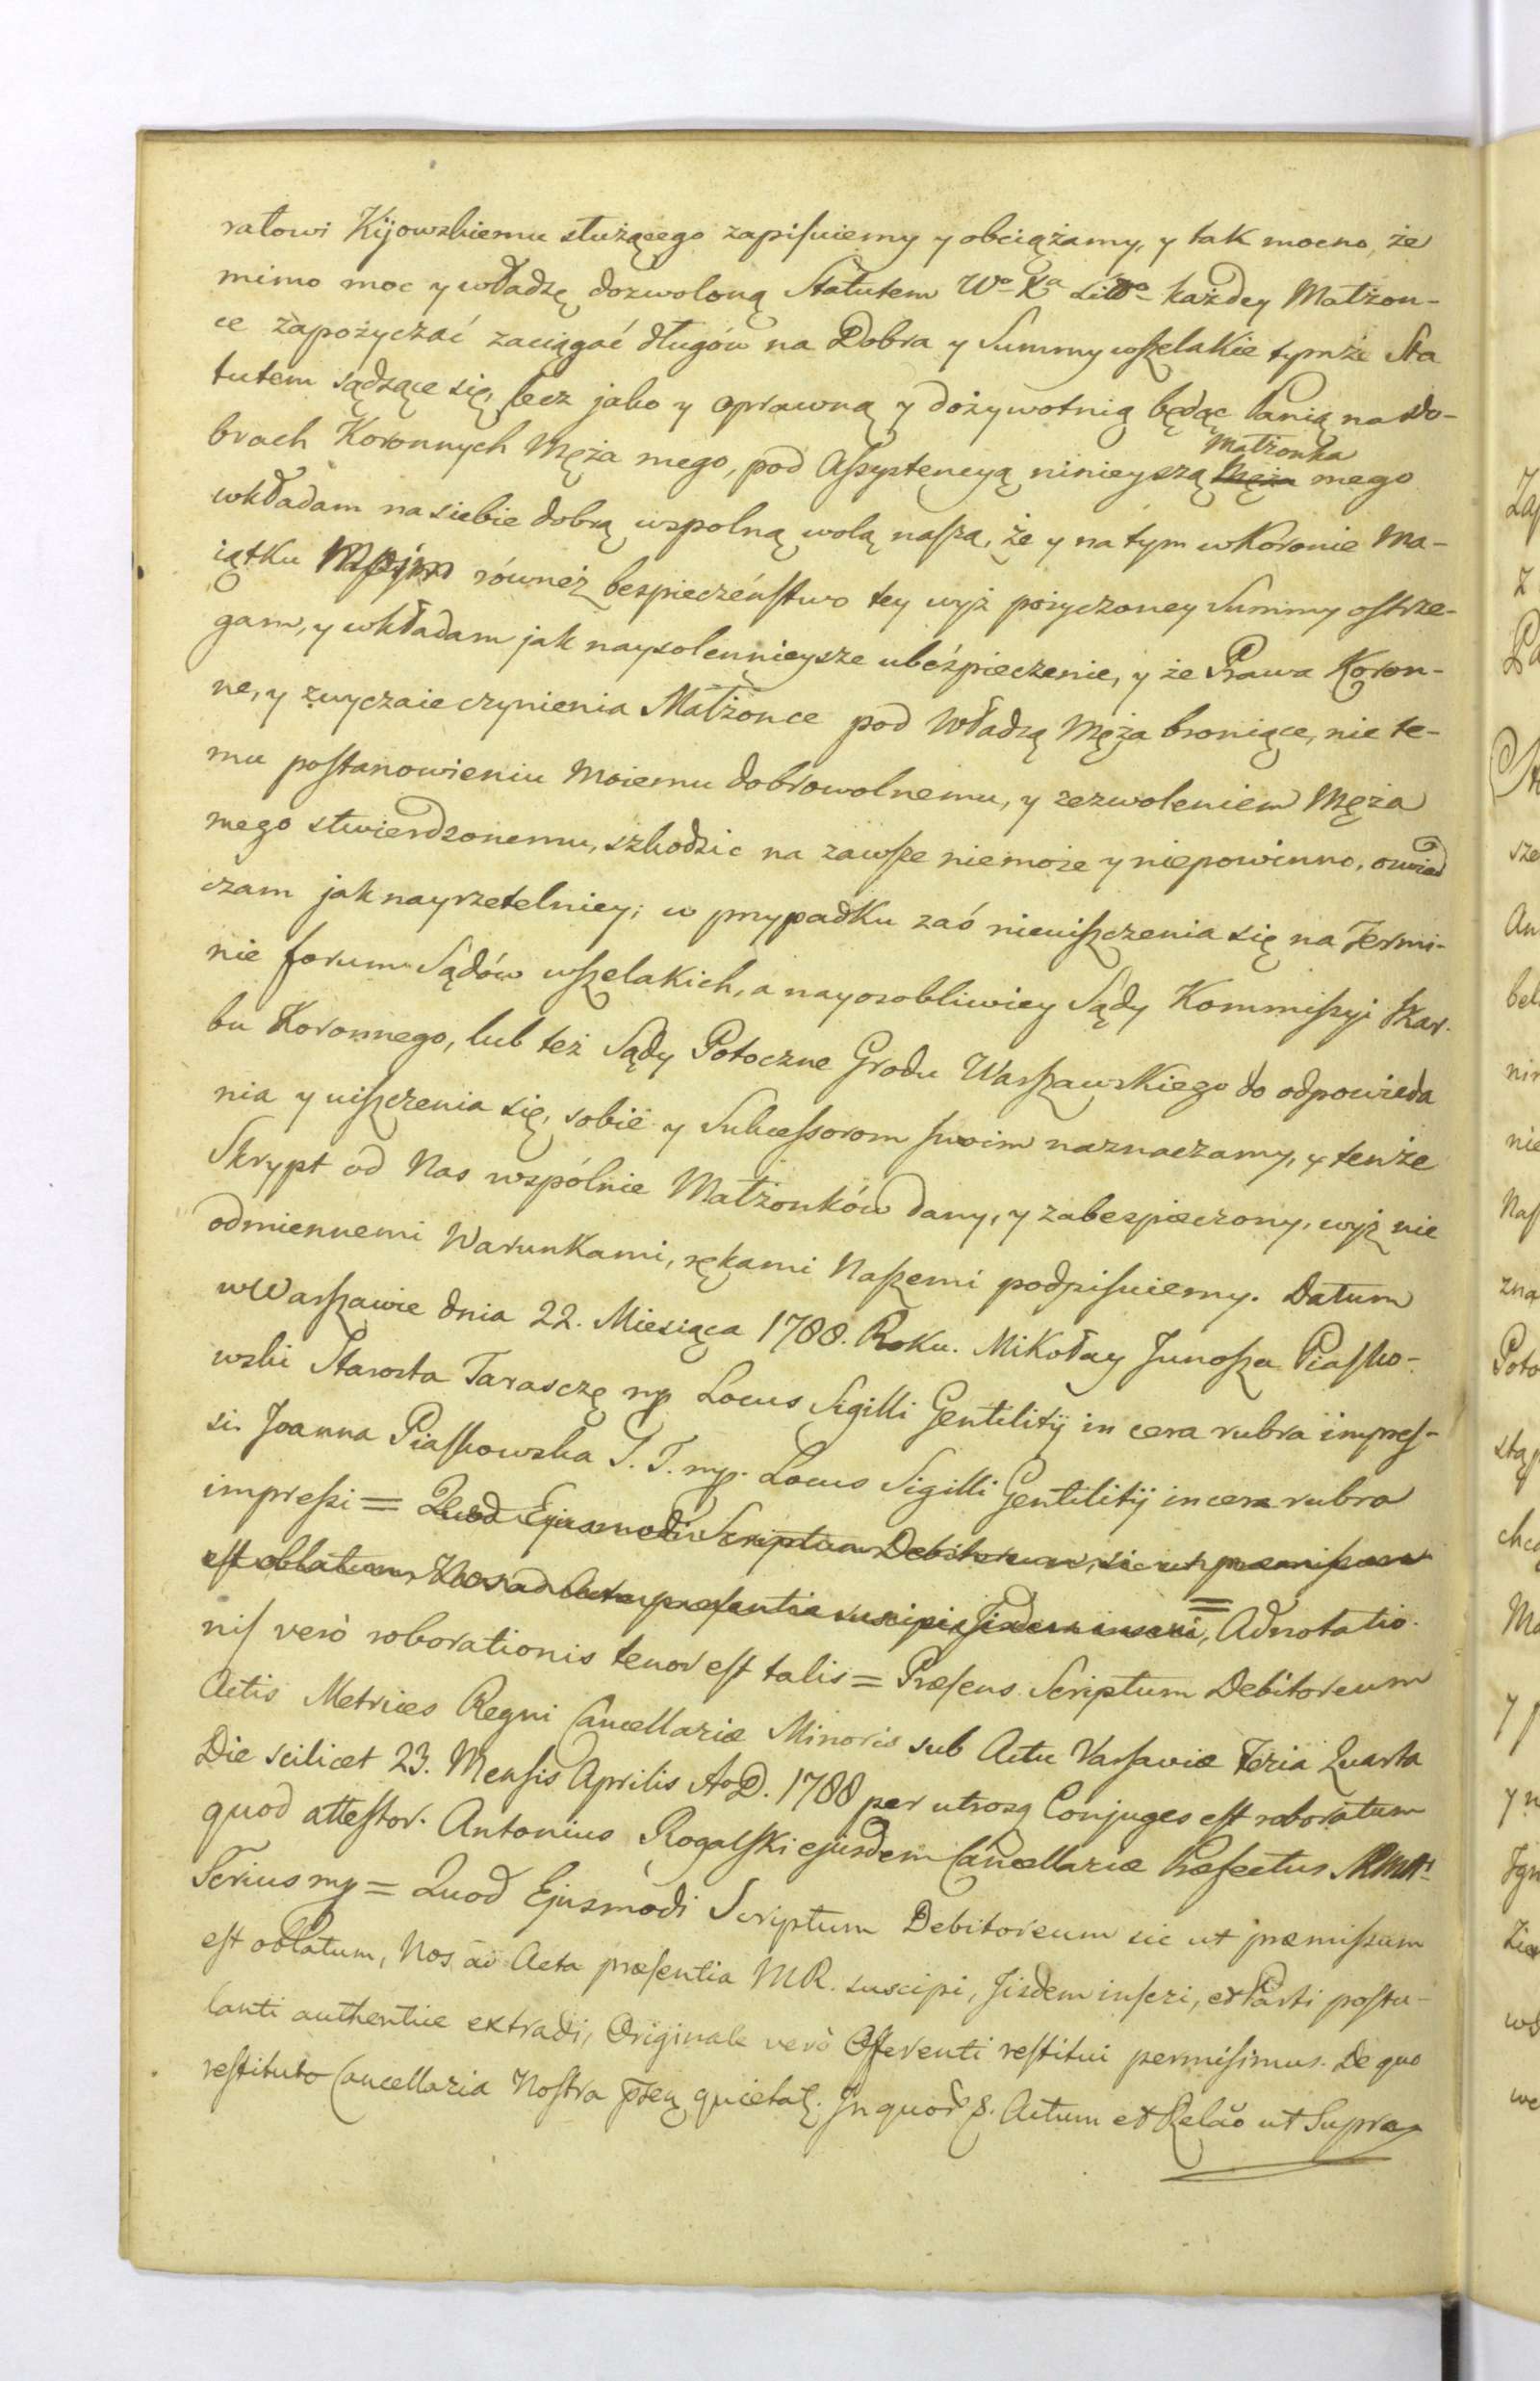 ratowi Kijowskiemu służącego zapisuiemy y obciążamy, y tak mocno, że
mimo moc y władzę dozwoloną Statutem Wo Xa Litto każdey Małżon-
ce zapożyczać zaciągać długów na Dobra y Summy wszelakie tymże Sta
tutem sądzące się, lecz jako y oprawną y dożywotnią będąc Panią na do-
Małżonka
brach Koronnych Męża mego, pod Assystencyą ninieyszą Męża mego
wkładam na siebie dobrą wspolną wolą naszą, że y na tym w Koronie Ma-
iątku Moim równeż bespieczeństwo tey wyż pożyczoney Summy ostrze-
gam, y wkładam jak naysolennieysze ubeśpieczenie, y że Prawa Koron-
ne, y zwyczaie czynienia Małżonce pod Władzą Męża broniące, nie te-
mu postanowieniu Moiemu dobrowolnemu, y zezwoleniem Męża
mego stwierdzonemu, szkodzic na zawsze niemoże y niepowinno, oswiad
czam jak nayrzetelniey; w przypadku zaś nieuiszczenia się na Termi-
nie forum Sądów wszelakich, a nayosobliwiey Sądy Kommissyi Skar-
bu Koronnego, lub też Sądy Potoczne Grodu Warszawskiego do odpowieda
nia y uiszczenia się, sobie y Sukcessorom swoim naznaczamy, y tenże
Skrypt od Nas wspólnie Małżonków dany, y zabespieczony, wyż nie
odmiennemi Warunkami, rękami Naszemi podpisuiemy. Datum
w Warszawie dnia 22. Miesiąca 1788. Roku. Mikołay Junosza Piasko-
wski Starosta Tarasczę mp Locus Sigilli Gentilitij in cera rubra impres-
si. Joanna Piaskowska S. T. mp. Locus Sigilli Gentilitij in cera rubra
impressi = Quod Ejusmodi Scriptum Debitoreum, sic ut præmissum
est oblatum Nos ad Acta præsentia suscipi Jisdem inseri, = Adnotatio-
nis verò roborationis tenor est talis = Præsens Scriptum Debitoreum
Actis Metrices Regni Cancellariæ Minoris sub Actu Varsaviæ Feria Quarta
Die scilicet 23. Mensis Aprilis A D. 1788 per utrosq Conjuges est roboratum
quod attestor. Antonius Rogalski ejusdem Cancellariæ Præfectus
mp = Quod Ejusmodi Scriptum Debitoreum sic ut præmissum
est oblatum, Nos ad Acta præsentia MR. suscipi, Jisdem inseri, et Parti postu-
lanti authentice extradi, Originale verò Offerenti restitui permisimus. De quo
restituto Cancellaria Nostra pñtq quietatq. Jn quor §. Actum et Relaõ ut Supra